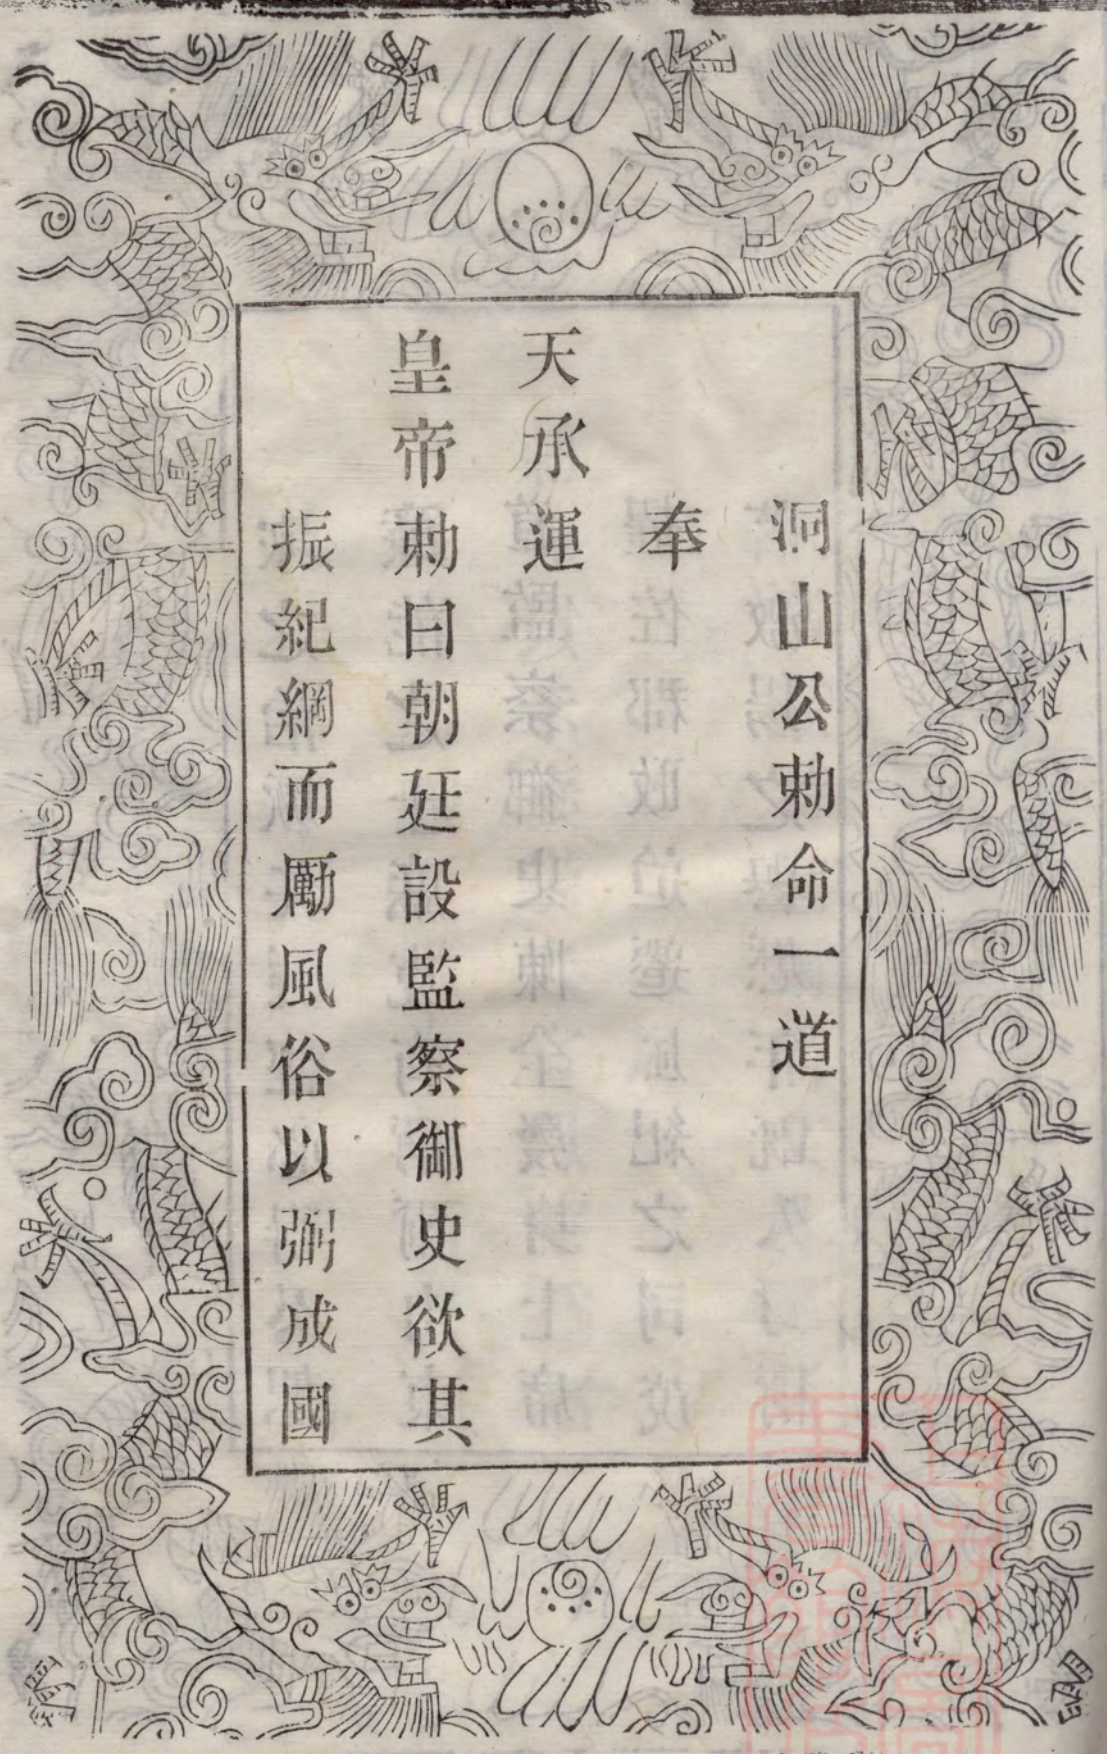 洞山公勅命一道
奉
天承運
皇帝勅曰朝廷設監察御史欲其
振紀綱而勵風俗以弼成國